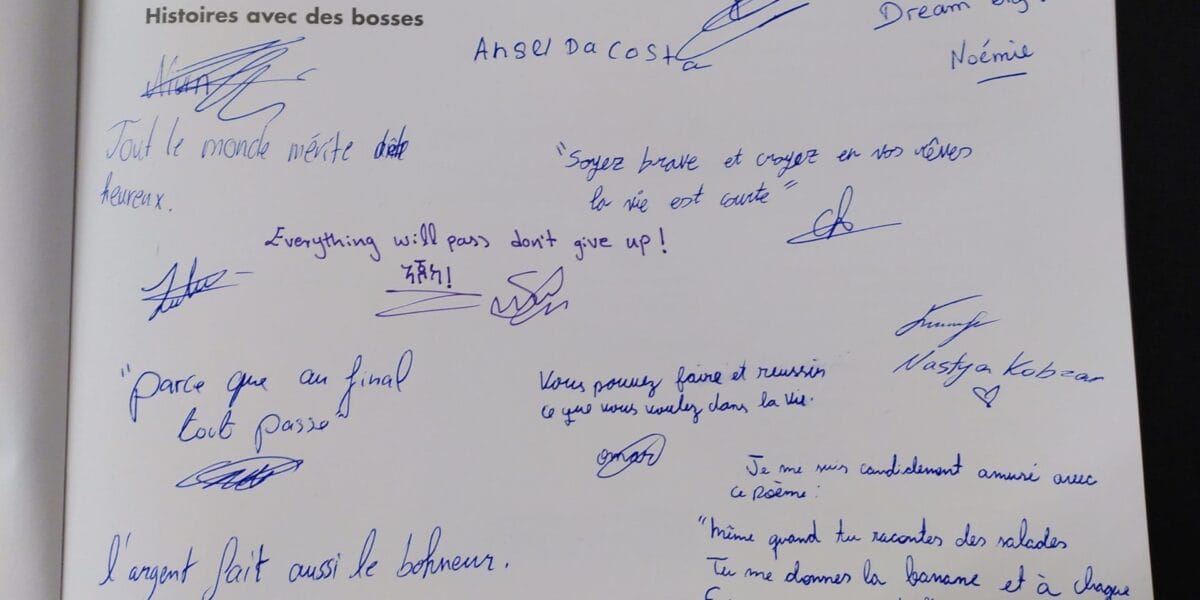 Histoires avec des bosses
Angel Da Costa
Dream big
Noémie
Tout le monde mérite
heureux.
"Soyez brave et croyez en vos rêves
la vie est courte"
Everything will pass don't give up!
"Parce que au final
tout passe"
Vous pouvez faire et reussin
ce que vous voulez dans la vie.
omar
Nastya Kobzar
Je me suis candidement amusé avec
ce poème:
"Même quand tu racontes des salades
Tu me donnes la banane et à chaque
l'argent fait aussi le bohneur.